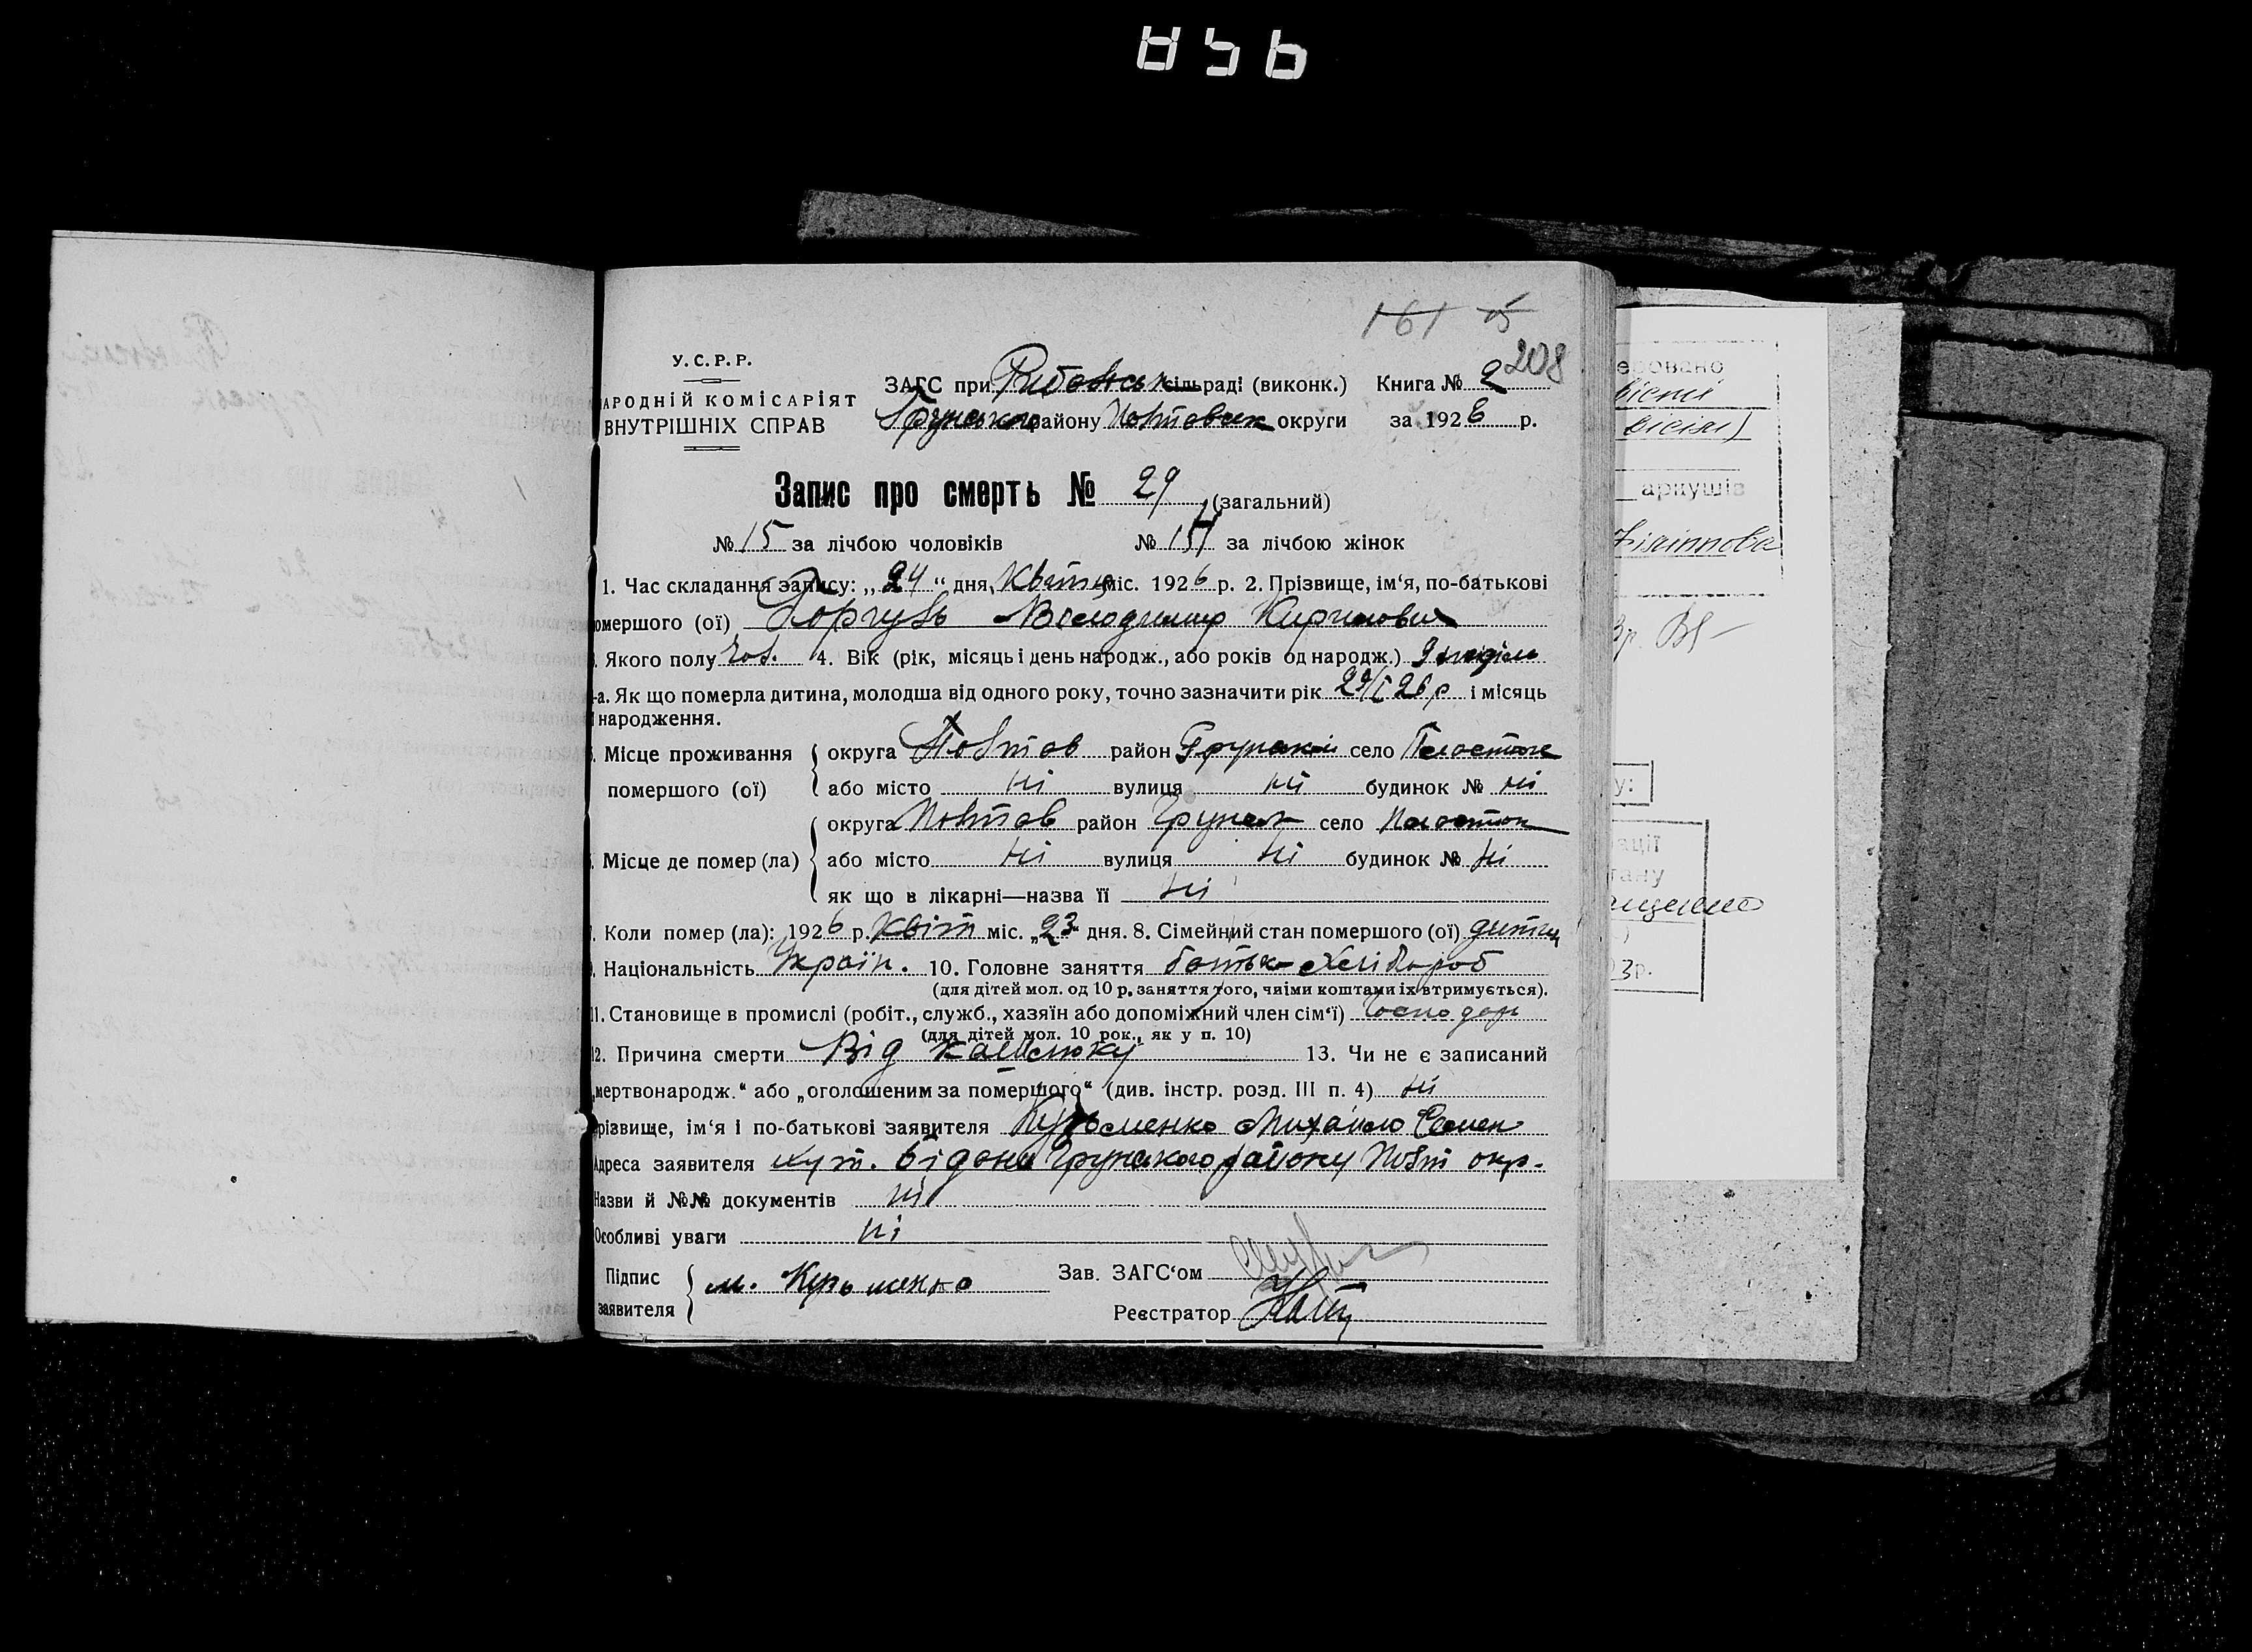 856
161 15
208
У.С.Р.Р.
АРОДНІЙ КОМІСАРІЯТ
ВНУТРІШНІХ СПРАВ
ЗАГС при Рибальськ сільраді (виконк.) Книга № 2
Грунського району Полтавськ округи за 1926 р.
Запис про смерть № 29 (загальний)
№ 15 за лічбою чоловіків № за лічбою жінок
1. Час складання запису: „24“ дня, Квітня міс. 1926 р. 2. Прізвище, ім‘я, по-батькові
омершого (ої) Володимир Кирилович
Якого полу чол. 4. Вік (рік, місяць і день народж., або років од народж.)
-а. Як що померла дитина, молодша від одного року, точно зазначити рік 29/I 26 р і місяць
народження.
Місце проживання
помершого (ої)
округа Полтав район Грунський село
або місто ні вулиця ні будинок № ні
Місце де помер (ла)
округа Полтав район Грунськ село
або місто ні вулиця ні будинок № ні
як що в лікарні—назва її ні
Коли помер (ла): 1926 р. Квіт міс. „23“ дня. 8. Сімейний стан помершого (ої) дитин
Національність Україн. 10. Головне заняття батько хлібороб
(для дітей мол. од 10 р. заняття того, чиїми коштами їх втримується).
11. Становище в промислі (робіт., служб., хазяїн або допоміжний член сім‘ї) господар
(для дітей мол. 10 рок., як у п. 10)
12. Причина смерти Від кашлюку 13. Чи не є записаний
„мертвонародж.“ або „оголошеним за помершого“ (див. інстр. розд. III п. 4) ні
різвище, ім‘я і по-батькові заявителя Кузьменко Михайло Семен
Адреса заявителя хут. Бідана Грунського району Полт окр.
Назви й №№ документів ні
Особливі уваги ні
Підпис
заявителя
м. Кузьменко
Зав. ЗАГС‘ом
Реєстратор
еровано
аркушів
Зр.
у:
ації
тану
03р.